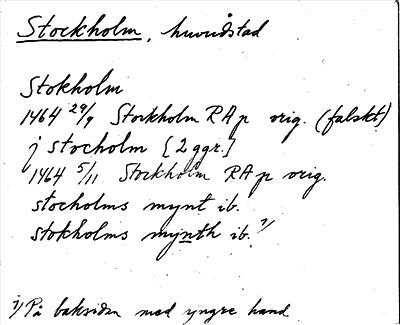 Stockholm, huvudstad
Stokholm
1464 29/9 Stockholm RA p orig. (falskt)
j stocholm [2 ggr.]
1464 5/11 Stockholm RA p orig.
stocholms mynt ib.
stokholms mynth ib. 1/
1/ På baksidan med yngre hand